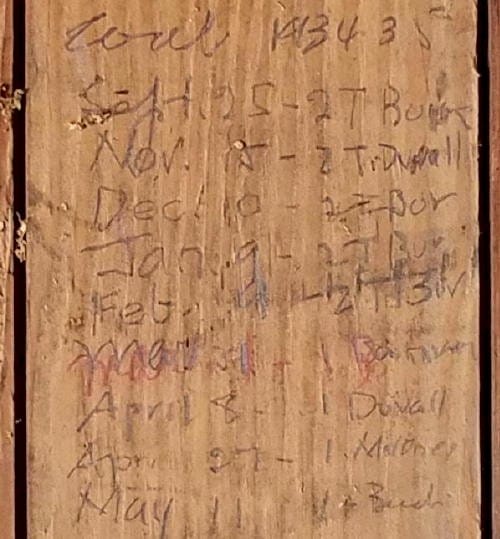 Coal 1934 35
Sept. 25 - 2T
Nov. 15 - 2 T. Duvall
Dec. 10 - 2T Bur
Jan. 9 - 2T Bur
Feb. 4 - 2T
1
April 8 - 1 Duvall
April 27 - 1 Maloney
May 11